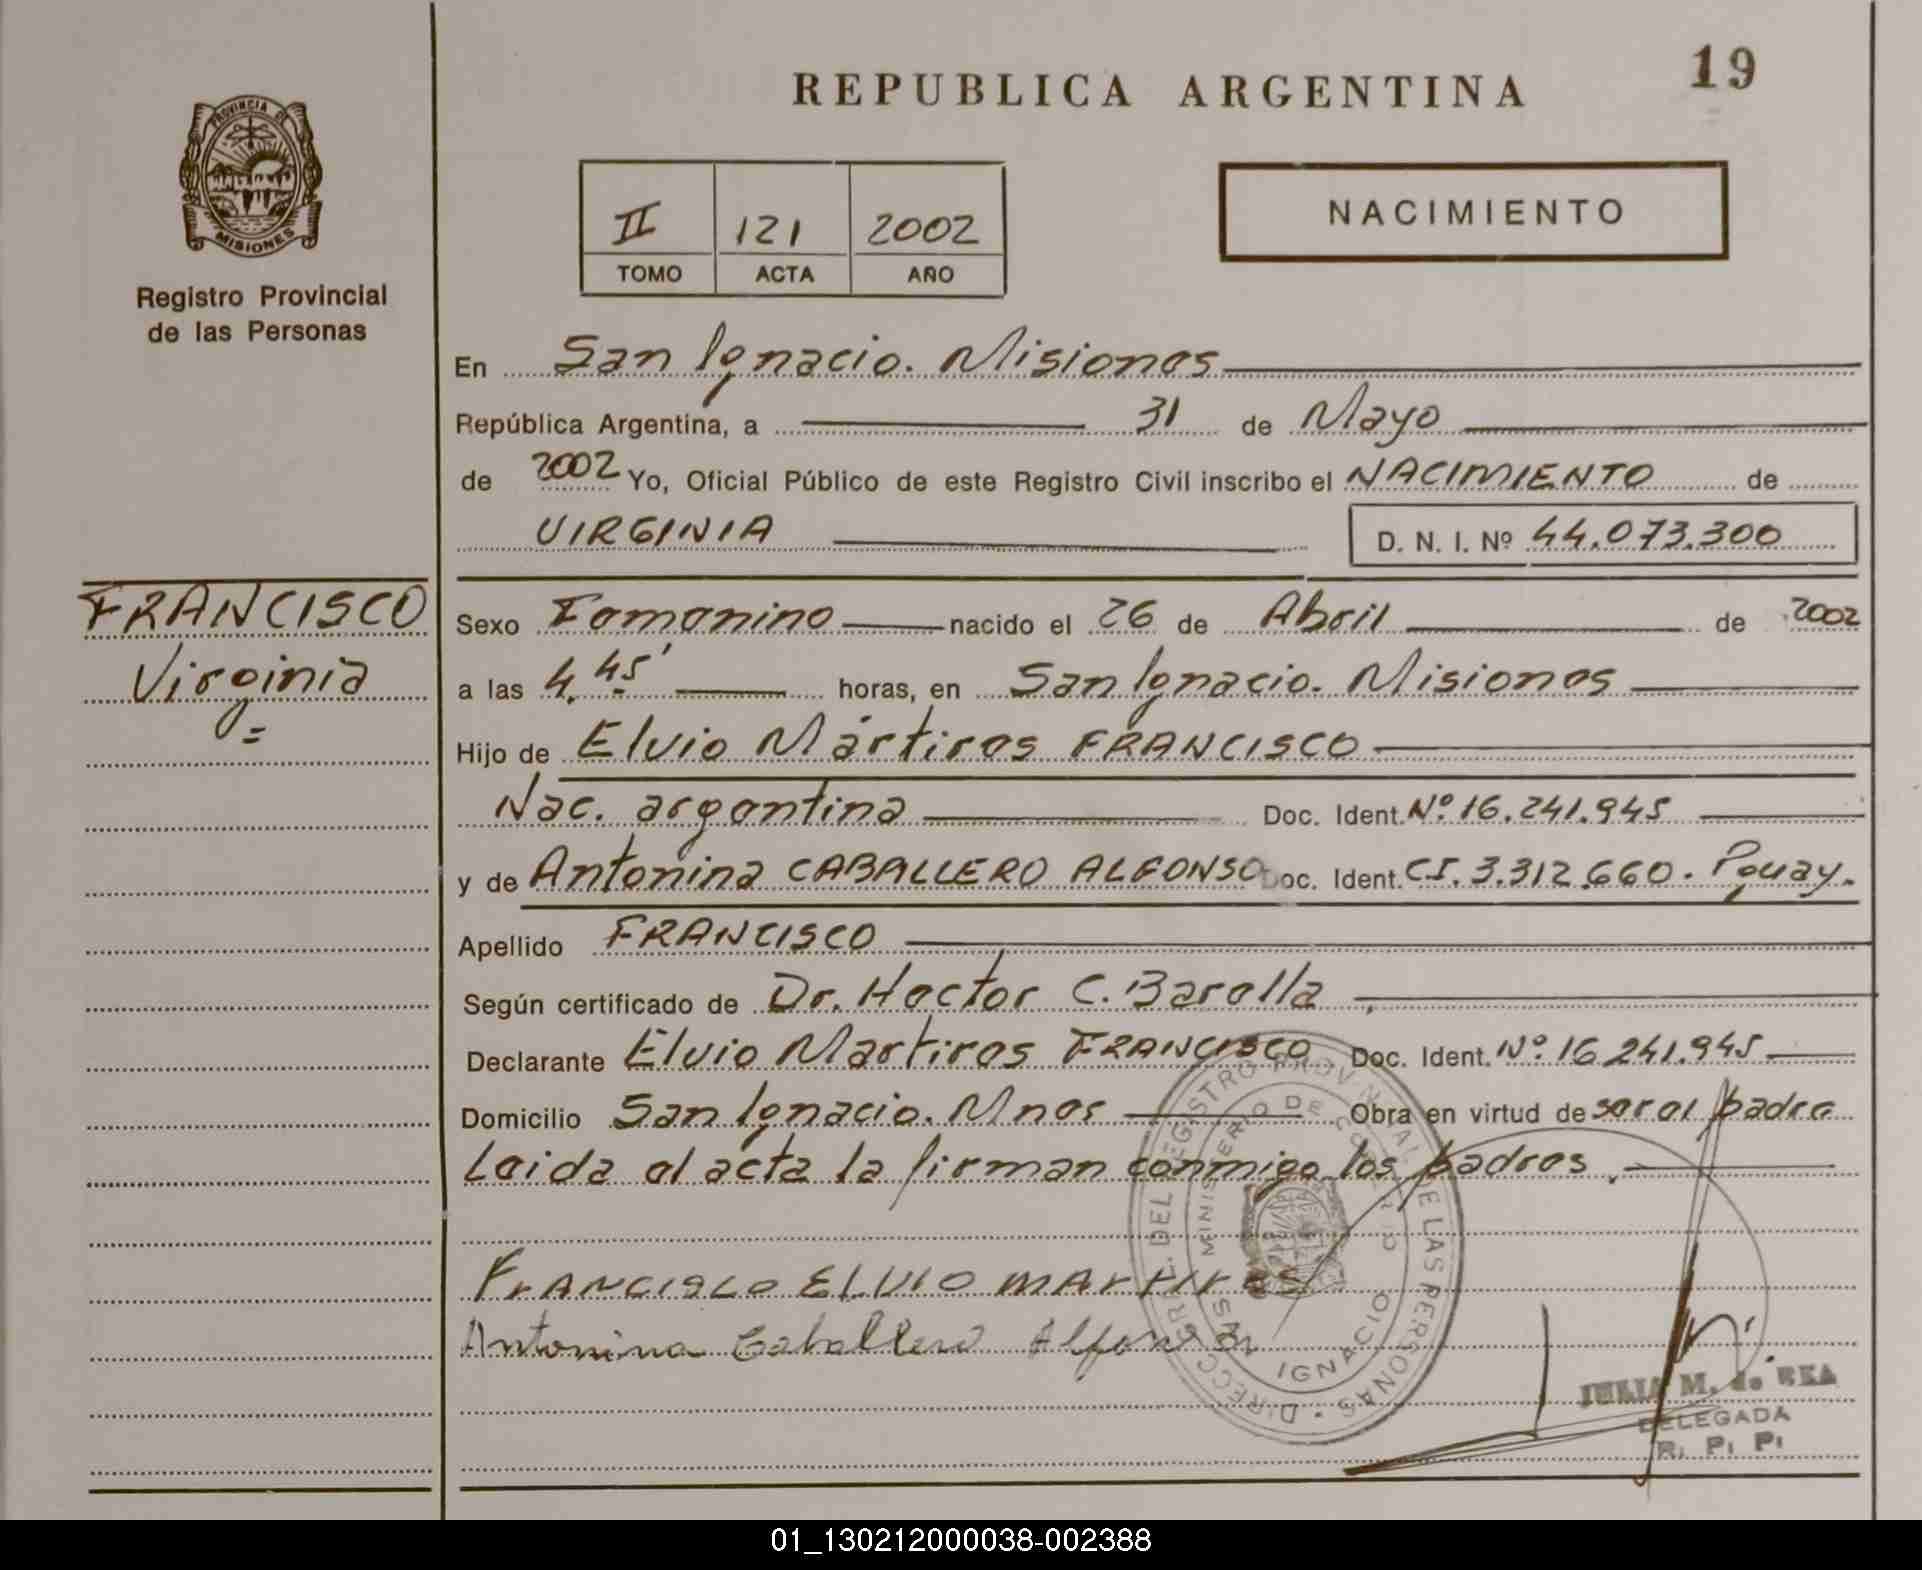 19
REPUBLICA ARGENTINA
PROVINCIA DE
MISIONES
Registro Provincial
de las Personas
II 121 2002
TOMO ACTA AÑO
NACIMIENTO
En San Ignacio. Misiones
República Argentina, a 31 de Mayo
de 2002 Yo, Oficial Público de este Registro Civil inscribo el NACIMIENTO de
VIRGINIA D. N. I. Nº 44.073.300
FRANCISCO
Virginia =
Sexo Femenino nacido el 26 de Abril de 2002
a las 4.45' horas, en San Ignacio. Misiones
Hijo de Elvio Mártires FRANCISCO
Nac. argentina Doc. Ident. Nº 16.241.945
y de Antonina CABALLERO ALFONSO Doc. Ident. CI. 3.312.660. Pguay.
Apellido FRANCISCO
Según certificado de Dr. Hector C. Barella
Declarante Elvio Martires FRANCISCO Doc. Ident. Nº 16.241.945
Domicilio San Ignacio. Mnes Obra en virtud de ser el padre
Leida el acta la firman conmigo los padres.
FrANCISCO ELVIO MArtIres
Antonina Caballero Alfonso
DIRECC. GR. DEL REGISTRO PROVINCIAL DE LAS PERSONAS
MINISTERIO DE GOBIERNO
SAN IGNACIO
JULIA M. d. REA
DELEGADA
R. P. P.
01_130212000038-002388